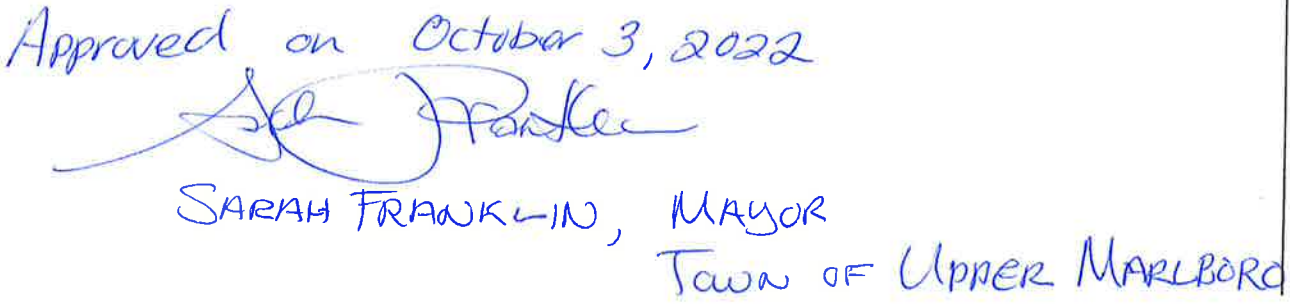 Approved on October 3, 2022
Sarah Franklin
SARAH FRANKLIN, MAYOR
TOWN OF UPPER MARLBORO